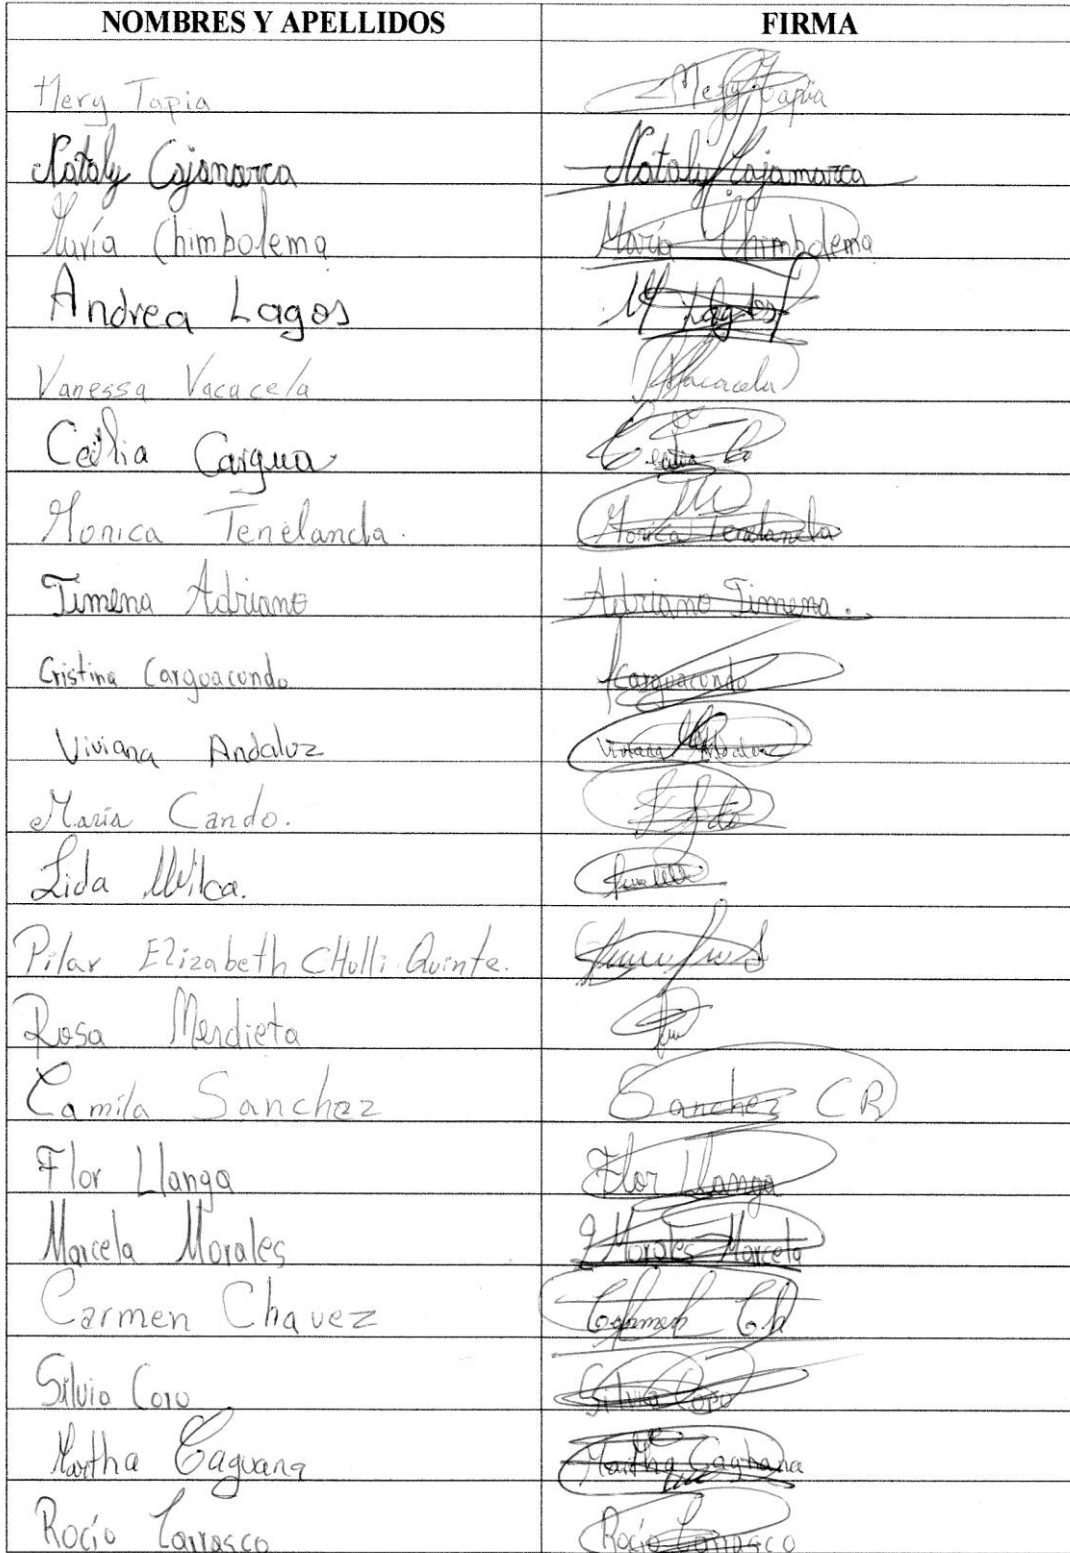 NOMBRES Y APELLIDOS FIRMA
Mery Tapia Mery Tapia
Nataly Cajamarca Nataly Cajamarca
María Chimbolema María Chimbolema
Andrea Lagos M Lagos
Vanessa Vacacela Vacacela
Cecilia Cargua
Monica Tenelanda. Monica Tenelanda
Jimena Adriano Adriano Jimena.
Cristina Carguacundo Carguacundo
Viviana Andaluz Viviana Andaluz
María Cando.
Lida Wilca.
Pilar Elizabeth CHulli Quinte.
Rosa Mendieta
Camila Sanchez Sanchez CR
Flor Llanga Flor Llanga
Marcela Morales Morales Marcela
Carmen Chavez Carmen Ch
Silvia Coro Silvia Coro
Martha Caguana Martha Caguana
Rocío Carrasco Rocío Carrasco